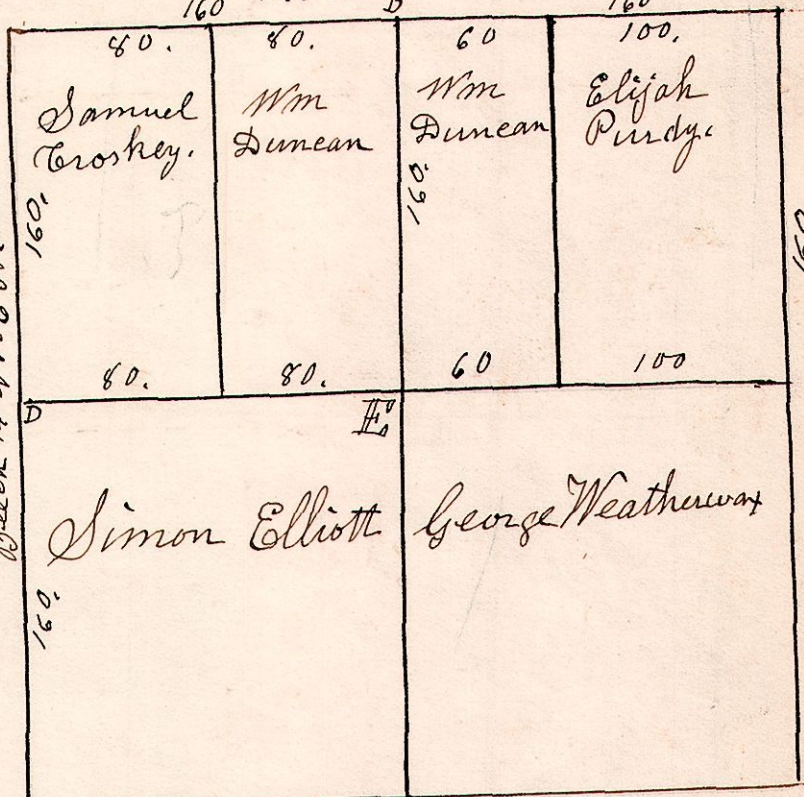 160 160
80. 80. 60 100.
Samuel
Croskey.
Wm
Duncan
Wm
Duncan
Elijah
Purdy.
160.
160
160
80. 80. 60 100
D
E.
Simon Elliott
George Weatherwax
160.